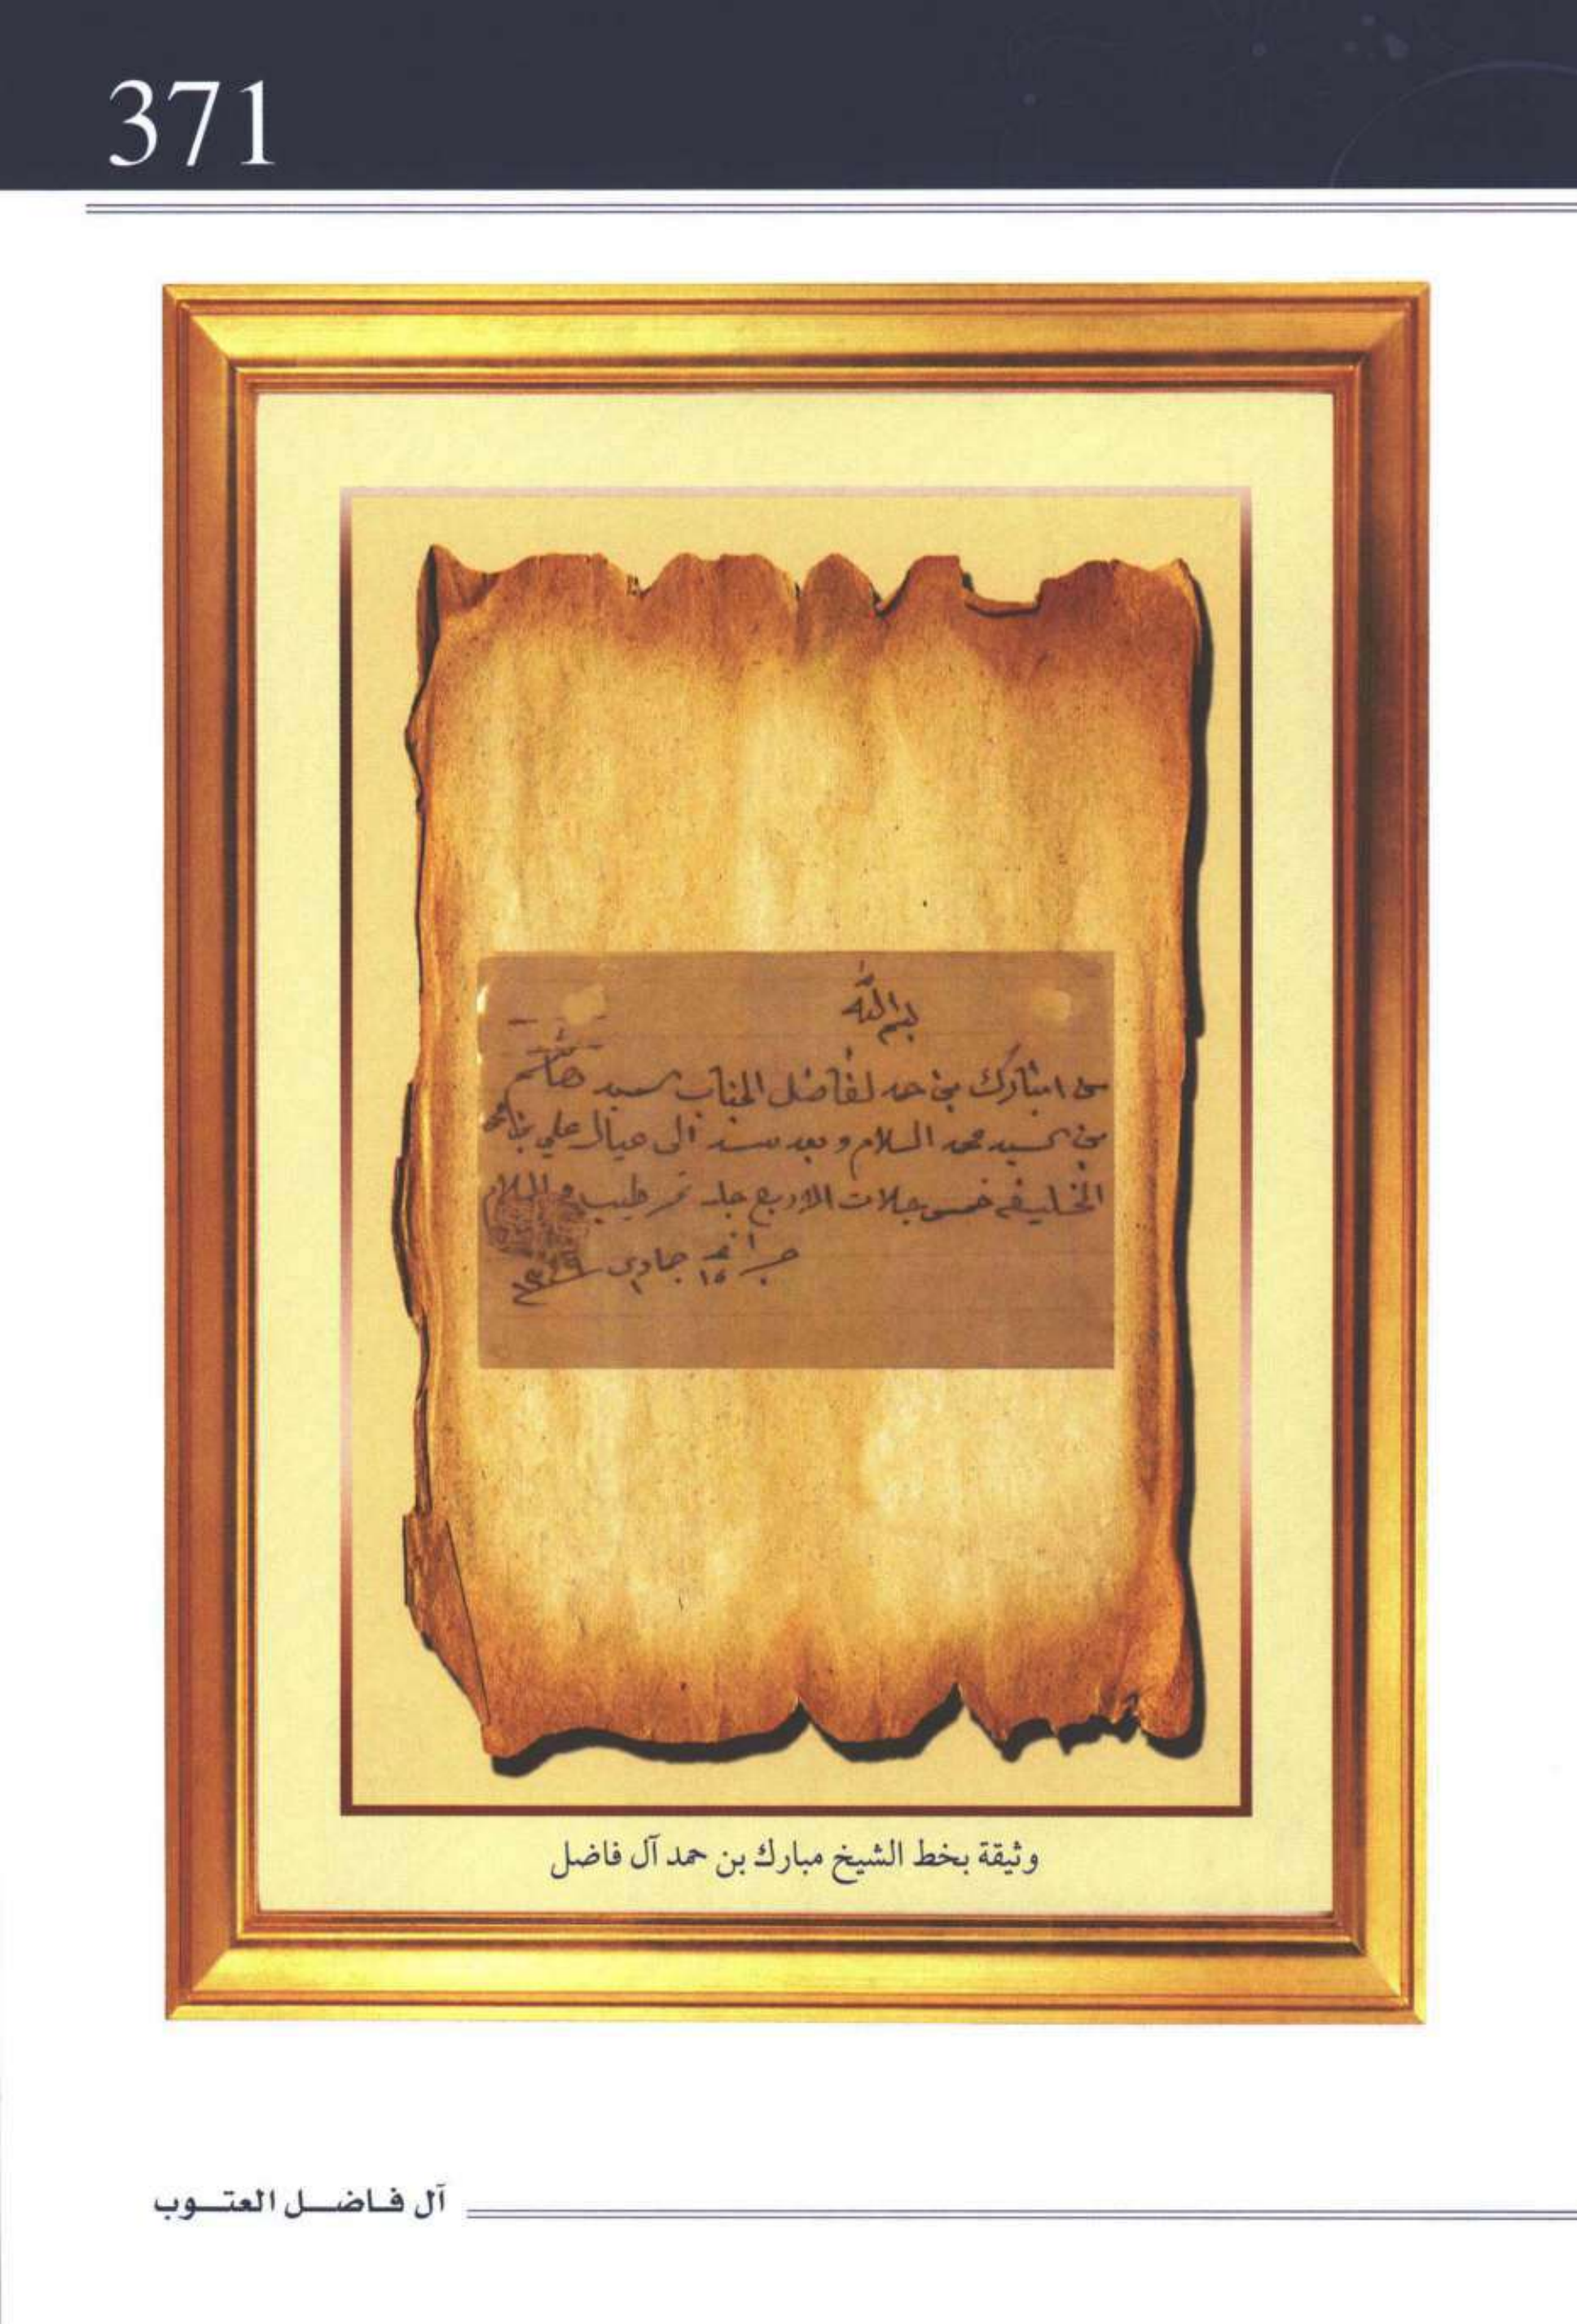 371
بسم الله
من امبارك بن حمد لفاضل الجناب سيد هاشم
بن السيد محمد السلام وبعد سند الى عيال علي بن
الخليفه خمس جلات الاربع جلة تمر طيب والسلام
١٥ جمادى ١٣٤٩
وثيقة بخط الشيخ مبارك بن حمد آل فاضل
آل فاضل العتوب